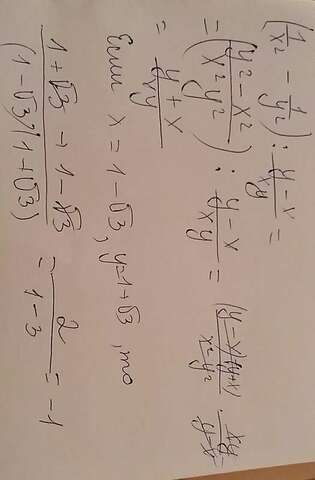 (1/x² - 1/y²) : (y - x)/xy =
= ((y² - x²)/x²y²) : (y - x)/xy = (y - x)(y + x)/x²y² · xy/(y - x) =
= (y + x)/xy
Если x = 1 - √3, y = 1 + √3, то
(1 + √3 + 1 - √3)/((1 - √3)(1 + √3)) = 2/(1 - 3) = -1